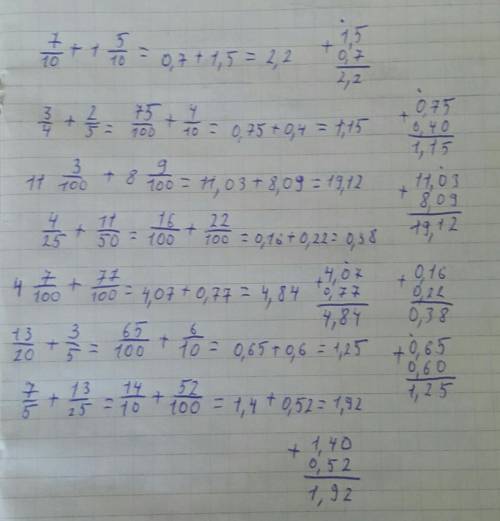 7/10 + 1 5/10 = 0,7 + 1,5 = 2,2
+ 1,5
0,7
2,2
3/4 + 2/5 = 75/100 + 4/10 = 0,75 + 0,4 = 1,15
+ 0,75
0,40
1,15
11 3/100 + 8 9/100 = 11,03 + 8,09 = 19,12
+ 11,03
8,09
19,12
4/25 + 11/50 = 16/100 + 22/100 = 0,16 + 0,22 = 0,38
4 7/100 + 77/100 = 4,07 + 0,77 = 4,84
+ 4,07
0,77
4,84
+ 0,16
0,22
0,38
13/20 + 3/5 = 65/100 + 6/10 = 0,65 + 0,6 = 1,25
+ 0,65
0,60
1,25
7/5 + 13/25 = 14/10 + 52/100 = 1,4 + 0,52 = 1,92
+ 1,40
0,52
1,92